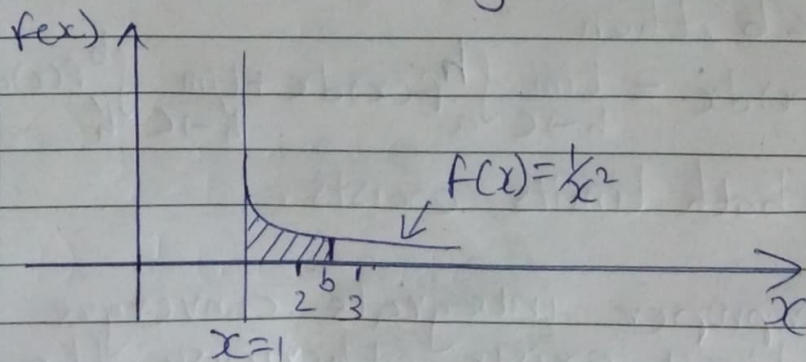 f(x)
f(x) = 1/x²
2 b 3
x
x=1